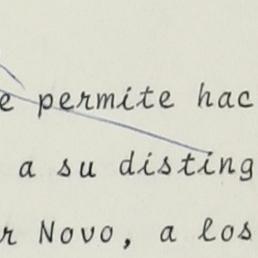 e permite hac
a su disting
r Novo, a los